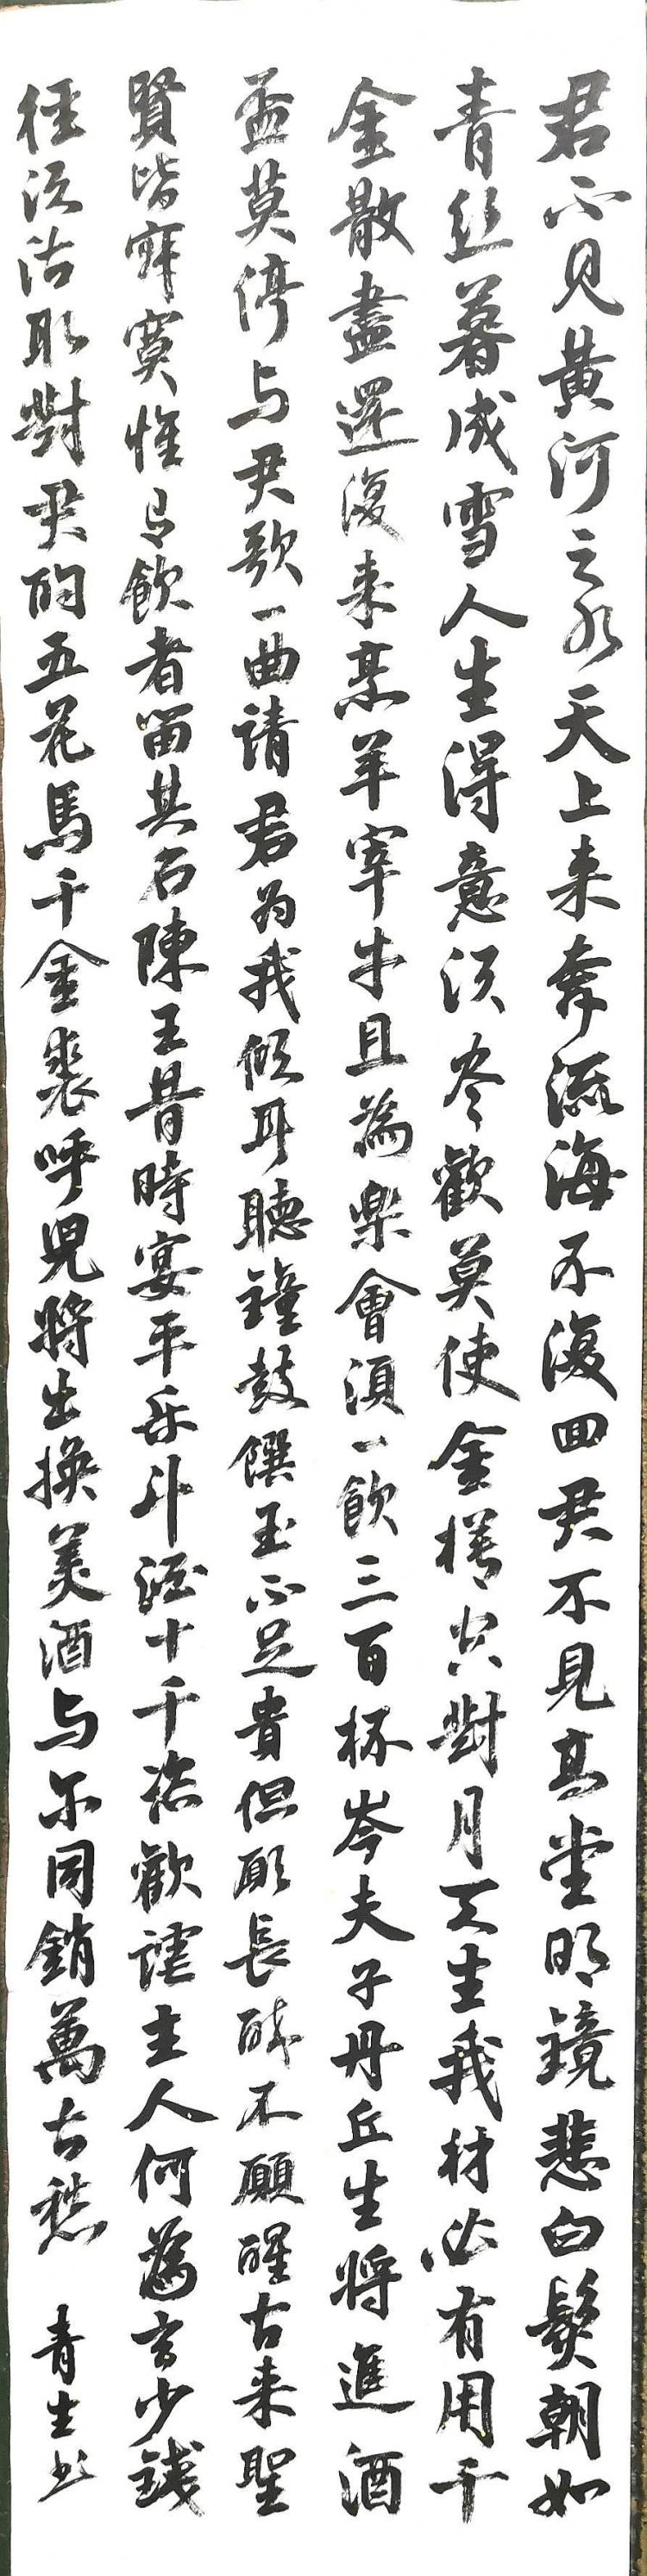 君不見黃河之水天上来奔流海不復回君不見高堂明鏡悲白髮朝如
青丝暮成雪人生得意须尽歡莫使金樽空對月天生我材必有用千
金散盡還復来烹羊宰牛且為樂會須一飲三百杯岑夫子丹丘生將進酒
盃莫停与君歌一曲請君为我倾耳聽鐘鼓饌玉不足貴但願長醉不願醒古来聖
賢皆寂寞惟有飲者留其名陳王昔時宴平乐斗酒十千恣歡謔主人何為言少錢
径须沽取對君酌五花馬千金裘呼兒將出換美酒与尔同銷萬古愁 青生书